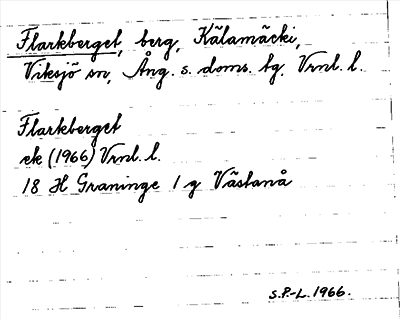 Flarkberget, berg, Kälamäcki,
Viksjö sn, Ång. s. doms. tg. Vrnl. l.
Flarkberget
ek (1966) Vrnl. l.
18 H Graninge 1 g Västanå
S.P.-L. 1966.